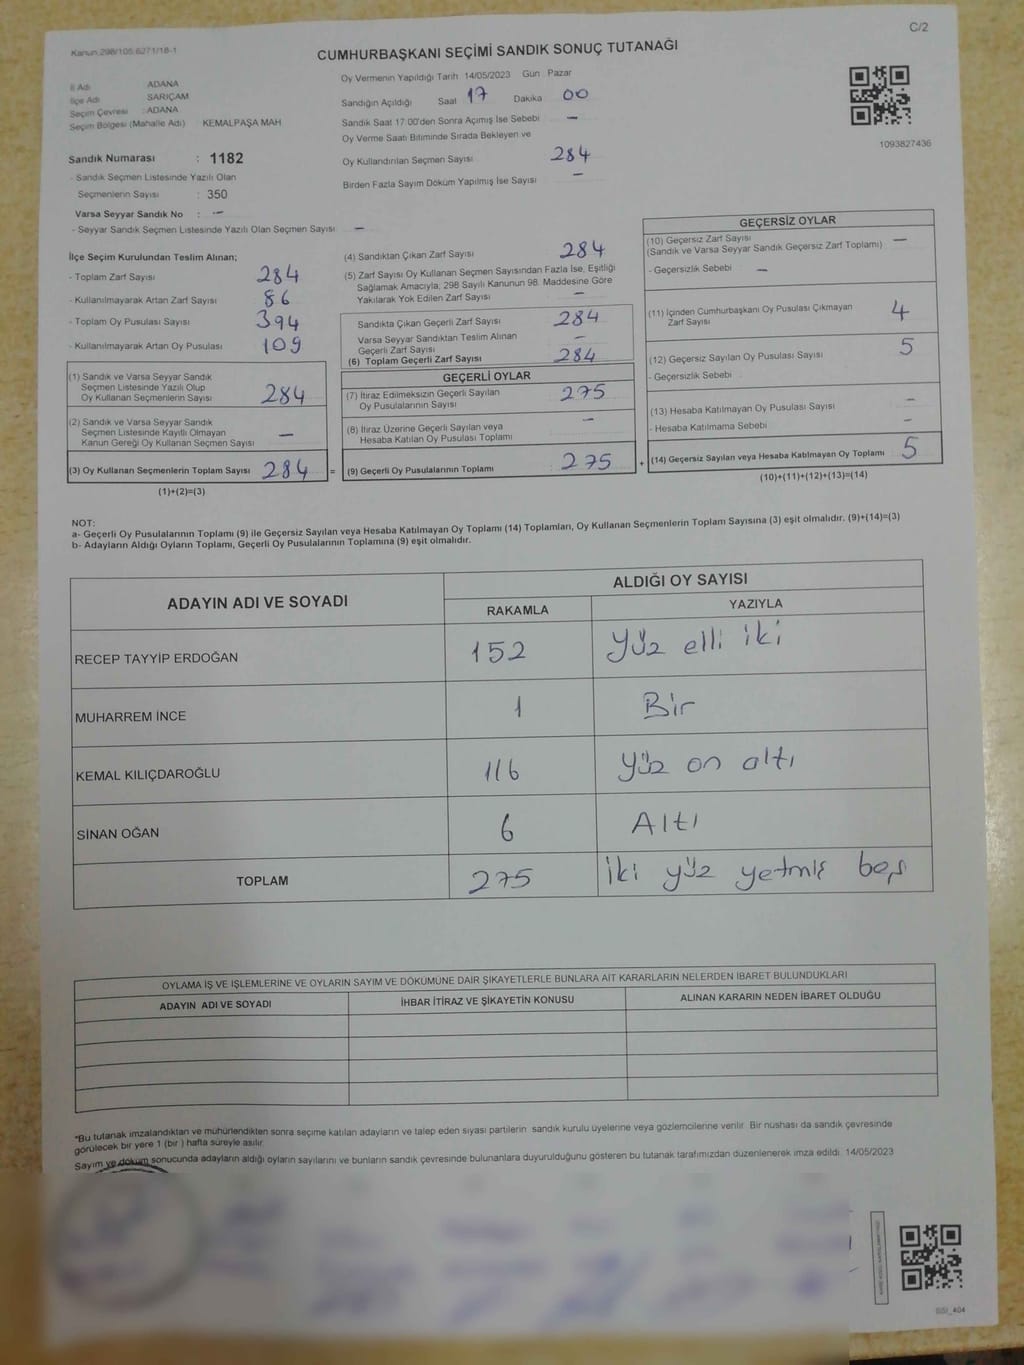 Kanun 298/105 6271/18-1
C/2
CUMHURBAŞKANI SEÇİMİ SANDIK SONUÇ TUTANAĞI
İl Adı ADANA
İlçe Adı SARIÇAM
Seçim Çevresi : ADANA
Seçim Bölgesi (Mahalle Adı) KEMALPAŞA MAH
Sandık Numarası : 1182
- Sandık Seçmen Listesinde Yazılı Olan
Seçmenlerin Sayısı : 350
Varsa Seyyar Sandık No : -
- Seyyar Sandık Seçmen Listesinde Yazılı Olan Seçmen Sayısı -
Oy Vermenin Yapıldığı Tarih 14/05/2023 Gün Pazar
Sandığın Açıldığı Saat 17 Dakika 00
Sandık Saat 17:00'den Sonra Açımış İse Sebebi -
Oy Verme Saati Bitiminde Sırada Bekleyen ve
Oy Kullandırılan Seçmen Sayısı 284
Birden Fazla Sayım Döküm Yapılmış İse Sayısı -
1093827436
İlçe Seçim Kurulundan Teslim Alınan;
- Toplam Zarf Sayısı 284
- Kullanılmayarak Artan Zarf Sayısı 86
- Toplam Oy Pusulası Sayısı 394
- Kullanılmayarak Artan Oy Pusulası 109
(1) Sandık ve Varsa Seyyar Sandık
Seçmen Listesinde Yazılı Olup
Oy Kullanan Seçmenlerin Sayısı 284
(2) Sandık ve Varsa Seyyar Sandık
Seçmen Listesinde Kayıtlı Olmayan
Kanun Gereği Oy Kullanan Seçmen Sayısı -
(3) Oy Kullanan Seçmenlerin Toplam Sayısı 284 =
(1)+(2)=(3)
(4) Sandıktan Çıkan Zarf Sayısı 284
(5) Zarf Sayısı Oy Kullanan Seçmen Sayısından Fazla İse, Eşitliği
Sağlamak Amacıyla; 298 Sayılı Kanunun 98. Maddesine Göre
Yakılarak Yok Edilen Zarf Sayısı -
Sandıkta Çıkan Geçerli Zarf Sayısı 284
Varsa Seyyar Sandıktan Teslim Alınan
Geçerli Zarf Sayısı -
(6) Toplam Geçerli Zarf Sayısı 284
GEÇERLİ OYLAR
(7) İtiraz Edilmeksizin Geçerli Sayılan
Oy Pusulalarının Sayısı 275
(8) İtiraz Üzerine Geçerli Sayılan veya
Hesaba Katılan Oy Pusulası Toplamı -
(9) Geçerli Oy Pusulalarının Toplamı 275 +
GEÇERSİZ OYLAR
(10) Geçersiz Zarf Sayısı -
(Sandık ve Varsa Seyyar Sandık Geçersiz Zarf Toplamı)
- Geçersizlik Sebebi -
(11) İçinden Cumhurbaşkanı Oy Pusulası Çıkmayan
Zarf Sayısı 4
(12) Geçersiz Sayılan Oy Pusulası Sayısı 5
- Geçersizlik Sebebi
(13) Hesaba Katılmayan Oy Pusulası Sayısı -
- Hesaba Katılmama Sebebi -
(14) Geçersiz Sayılan veya Hesaba Katılmayan Oy Toplamı 5
(10)+(11)+(12)+(13)=(14)
NOT:
a- Geçerli Oy Pusulalarının Toplamı (9) ile Geçersiz Sayılan veya Hesaba Katılmayan Oy Toplamı (14) Toplamları, Oy Kullanan Seçmenlerin Toplam Sayısına (3) eşit olmalıdır. (9)+(14)=(3)
b- Adayların Aldığı Oyların Toplamı, Geçerli Oy Pusulalarının Toplamına (9) eşit olmalıdır.
ADAYIN ADI VE SOYADI ALDIĞI OY SAYISI
RAKAMLA YAZIYLA
RECEP TAYYİP ERDOĞAN 152 Yüz elli iki
MUHARREM İNCE 1 Bir
KEMAL KILIÇDAROĞLU 116 Yüz on altı
SİNAN OĞAN 6 Altı
TOPLAM 275 İki yüz yetmiş beş
OYLAMA İŞ VE İŞLEMLERİNE VE OYLARIN SAYIM VE DÖKÜMÜNE DAİR ŞİKAYETLERLE BUNLARA AİT KARARLARIN NELERDEN İBARET BULUNDUKLARI
ADAYIN ADI VE SOYADI İHBAR İTİRAZ VE ŞİKAYETİN KONUSU ALINAN KARARIN NEDEN İBARET OLDUĞU
*Bu tutanak imzalandıktan ve mühürlendikten sonra seçime katılan adayların ve talep eden siyasi partilerin sandık kurulu üyelerine veya gözlemcilerine verilir. Bir nüshası da sandık çevresinde
görülecek bir yere 1 (bir) hafta süreyle asılır.
Sayım ve döküm sonucunda adayların aldığı oyların sayılarını ve bunların sandık çevresinde bulunanlara duyurulduğunu gösteren bu tutanak tarafımızdan düzenlenerek imza edildi. 14/05/2023
SSI_404